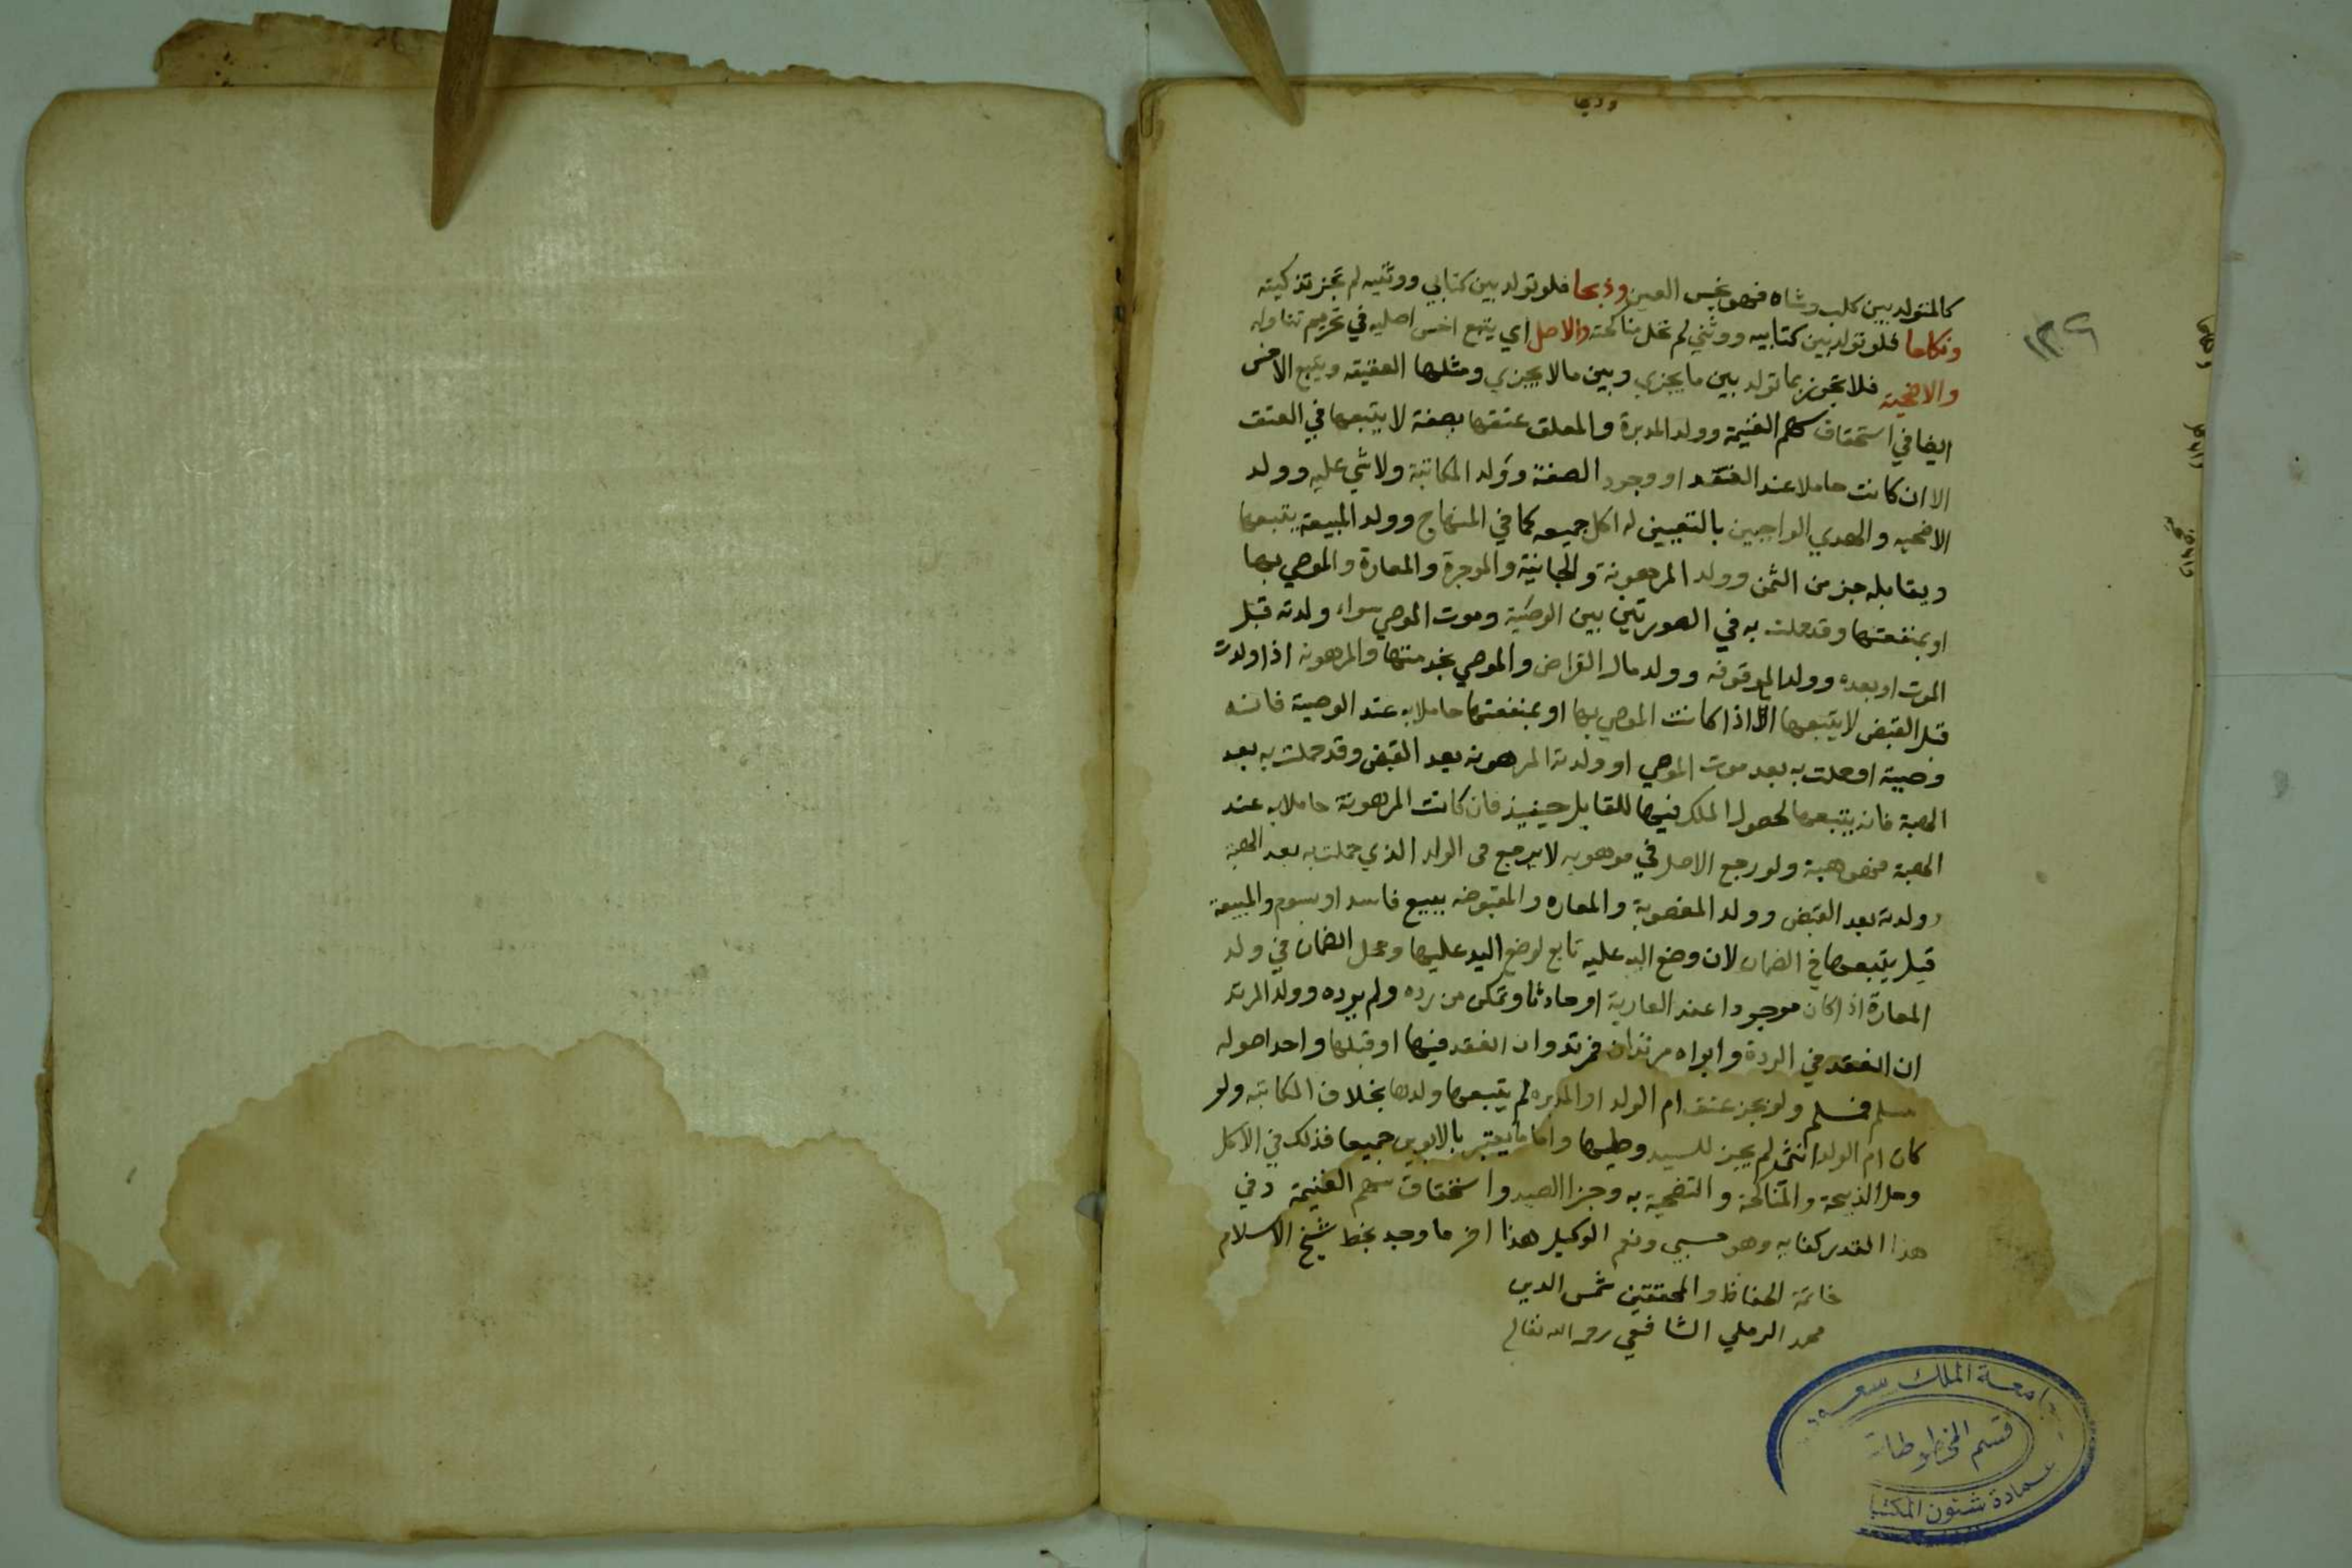 كالمتولد بين كلب وشاه فهو نجس العين وذبحا فلو تولد بين كتابي ووثنيه لم تجز تذكيته
ونكاحا فلو تولد بين كتابيه ووثني لم تحل مناكحته والاكل اي يتبع اخس اصليه في تحريم تناوله
والاضحية فلا تجوز بما تولد بين ما يجزي وبين مالا يجزي ومثلها العقيقه ويتبع الاخس
ايضا في استحقاق سهم الغنيمة وولد المدبرة والمعلق عتقها بصفة لا يتبعها في العتق
الا ان كانت حاملا عند العقد او وجود الصفة وولد المكاتبة ولا شي عليه وولد
الاضحيه والهدي الواجبين بالتعيين له اكل جميعه كما في المنهاج وولد المبيعة يتبعها
ويقابله جز من الثمن وولد المرهونة والجانية والموجرة والمعارة والموصي بها
او بمنفعتها وقد حملت به في الصورتين بين الوصية وموت الموصي سواء ولدته قبل
الموت او بعده وولد الموقوفه وولد مال القراض والموصي بخدمتها والمرهونه اذا ولدت
قبل القبض لا يتبعها الا اذا كانت الموصي بها او بمنفعتها حاملا به عند الوصية فانه
وصية او حملت به بعد موت الموصي او ولدته المرهونه بعد القبض وقد حملت به بعد
الهبة فانه يتبعها لحصول الملك فيها للقابل حينيذ فان كانت المرهونة حاملا به عند
الهبة فهو هبة ولو رجع الاصل في موهوبه لا يرجع في الولد الذي حملت به بعد الهبة
وولدته بعد القبض وولد المغصوبة والمعاره والمقبوضه ببيع فاسد او بسوم والمبيعة
قيل يتبعها في الضمان لان وضع اليد عليه تابع لوضع اليد عليها ومحل الضمان في ولد
المعارة اذا كان موجودا عند العارية او حادثا وتمكن من رده ولم يرده وولد المرتد
ان انعقد في الردة وابواه مرتدان فمرتد وان انعقد فيها او قبلها واحد اصوله
مسلم فمسلم ولو نجز عتق ام الولد او المدبره لم يتبعها ولدها بخلاف المكاتبه ولو
كان ام الولد انثى لم يجز للسيد وطيها واما ما يعتبر بالابوين جميعا فذلك في الاكل
وحل الذبيحة والمناكحة والتضحية به وجزا الصيد واستحقاق سهم الغنيمة وفي
هذا القدر كفايه وهو حسبي ونعم الوكيل هذا اخر ما وجد بخط شيخ الاسلام
خاتمة الحفاظ والمحققين شمس الدين
محمد الرملي الشافعي رحمه الله تعالى
جامعة الملك سعود
قسم المخطوطات
عمادة شئون المكتبا